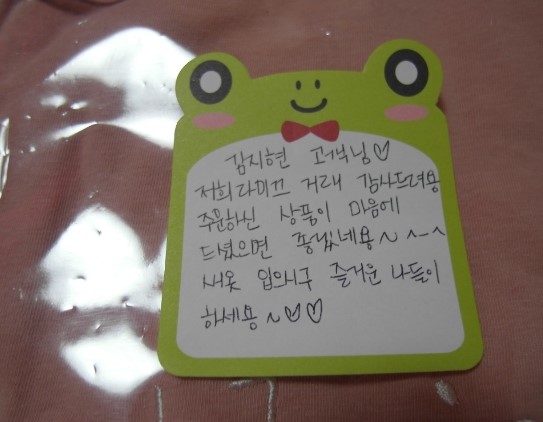 김지현 고객님♡
저희 라이끄 거래 감사드려용
주문하신 상품이 마음에
드셨으면 좋겠네용~ ^-^
새옷 입으시구 즐거운 나들이
하세용~♡♡